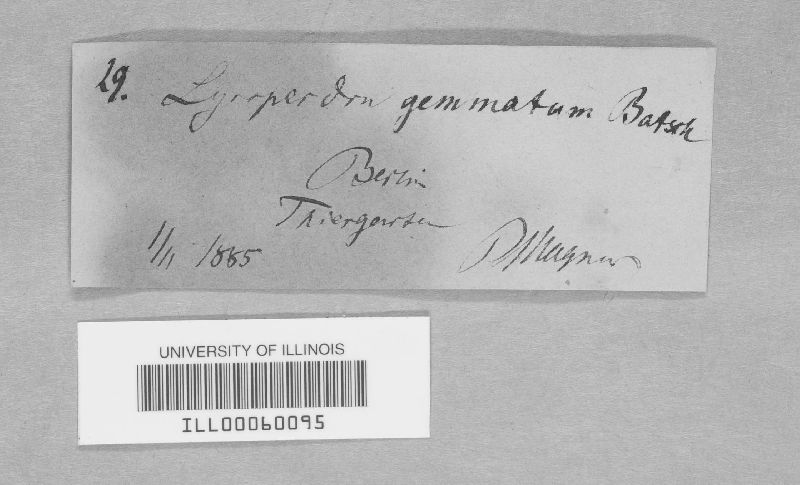 29. Lycoperdon gemmatum Batsch
Berlin
Thiergarten
1/11 1885 P. Magnus
UNIVERSITY OF ILLINOIS
ILL00060095